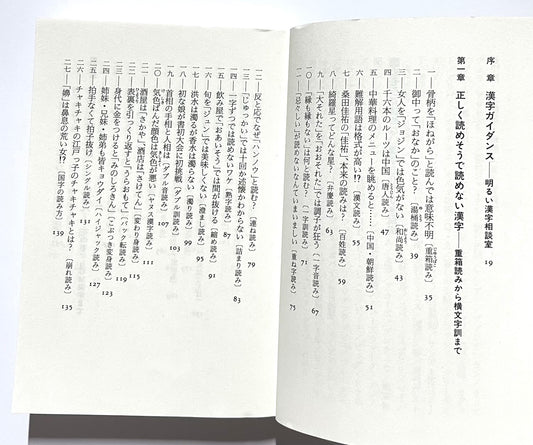 序　章　漢字ガイダンス――明るい漢字相談室　19
第一章　正しく読めそうで読めない漢字――重箱読みから横文字訓まで
一――骨柄を「ほねがら」と読んでは意味不明〔重箱読み〕　35
二――御中って「おなか」のこと？〔湯桶読み〕　39
三――女人を「ジョジン」では色気がない〔和尚読み〕　43
四――千六本のルーツは中国〔唐人読み〕　47
五――中華料理のメニューを眺めると……〔中国・朝鮮読み〕　51
六――難解用語は格式が高い!?〔漢文読み〕　55
七――桑田佳祐の「佳祐」、本来の読みは？〔百姓読み〕　59
八――綺羅星ってどんな星？〔弁慶読み〕　63
九――「大それた」を「おおそれた」では調子が狂う〔一字音読み〕　67
一〇――「縁も縁もない」は何と読む？〔一字訓読み〕　71
一一――「忌々しい」が読めないなんていまいましい〔重ね字読み〕　75
一二――反と応でなぜ「ハンノウ」と読む？〔連ね読み〕　79
一三――「じゅっかい」では十回か述懐かわからない〔詰まり読み〕　83
一四――一字ずつでは読めないワケ〔熟字読み〕　87
一五――飲み屋で「おあいそう」では間が抜ける〔縮め読み〕　91
一六――旬を「ジュン」では美味しくない〔濃まし読み〕　95
一七――洪水は濁るが香水は濁らない〔濁り読み〕　99
一八――初な娘が書初大会に初挑戦〔ダブル訓読み〕　103
一九――首相の手相と人相は？〔ダブル音読み〕　107
二〇――気色ばんだ顔色は気色が悪い〔ヤヌス漢字読み〕
二一――酒屋は「さかや」、酒店は「さけてん」〔変わり身読み〕
二二――表裏を引っくり返すと「うらおもて」〔バック転読み〕　113
二三――身代に金をつけると「みのしろきん」〔でぶつき変身読み〕　119
二四――姉妹・兄妹・姉弟も皆キョウダイ〔ハイジャック読み〕　123
二五――拍手なくて拍子抜け〔シングル読み〕　127
二六――チャキチャキの江戸っ子のチャキチャキとは？〔崩れ読み〕　131
二七――「嬶」は鼻息の荒い女!?〔国字の読み方〕　135
139